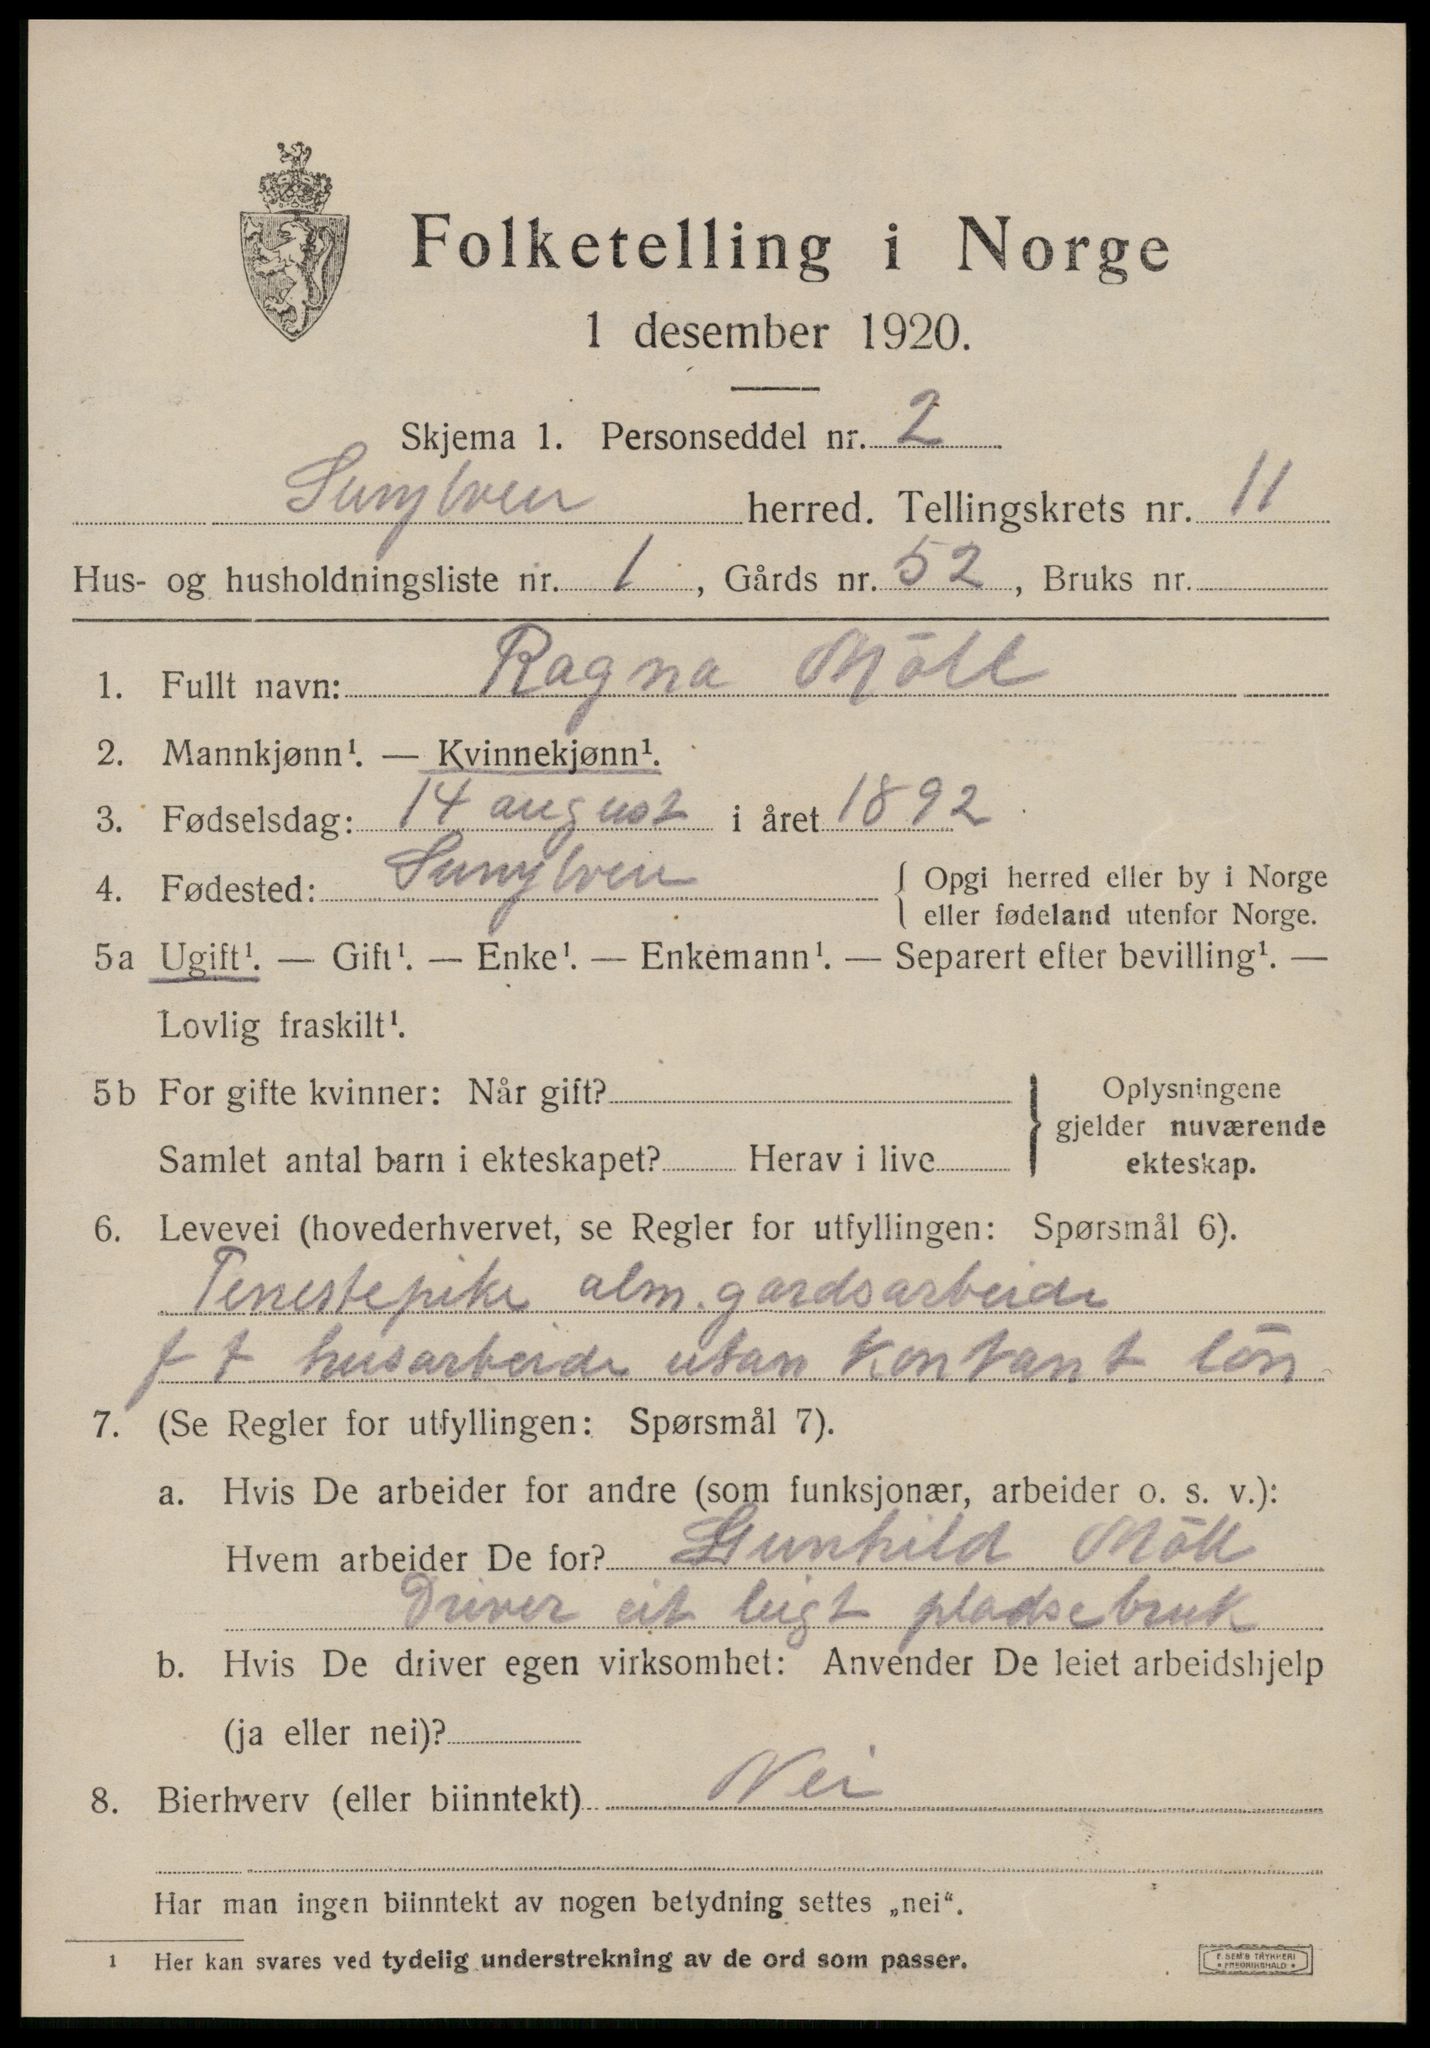 Folketelling i Norge
1 desember 1920.
Skjema 1. Personseddel nr. 2
Sunylven herred. Tellingskrets nr. 11
Hus- og husholdningsliste nr. 1, Gårds nr. 52, Bruks nr.
1. Fullt navn: Ragna Möll
2. Mannkjønn¹. — Kvinnekjønn¹.
3. Fødselsdag: 14 august i året 1892
4. Fødested: Sunylven { Opgi herred eller by i Norge
eller fødeland utenfor Norge.
5a Ugift¹. — Gift¹. — Enke¹. — Enkemann¹. — Separert efter bevilling¹. —
Lovlig fraskilt¹.
5b For gifte kvinner: Når gift? } Oplysningene
gjelder nuværende
Samlet antal barn i ekteskapet? Herav i live ekteskap.
6. Levevei (hovederhvervet, se Regler for utfyllingen: Spørsmål 6).
Tenestepike alm. gardsarbeide
f t husarbeide utan kontant lön
7. (Se Regler for utfyllingen: Spørsmål 7).
a. Hvis De arbeider for andre (som funksjonær, arbeider o. s. v.):
Hvem arbeider De for? Gunhild Möll
Driver eit leigt pladsebruk
b. Hvis De driver egen virksomhet: Anvender De leiet arbeidshjelp
(ja eller nei)?
8. Bierhverv (eller biinntekt) Nei
Har man ingen biinntekt av nogen betydning settes „nei“.
1 Her kan svares ved tydelig understrekning av de ord som passer.
E. SEM'S TRYKKERI
* FREDRIKSHALD *